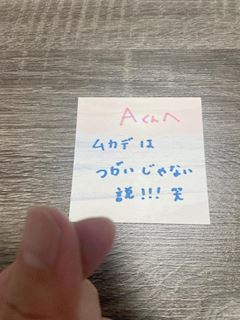 Aくんへ
ムカデは
つがいじゃない
説!!! 笑